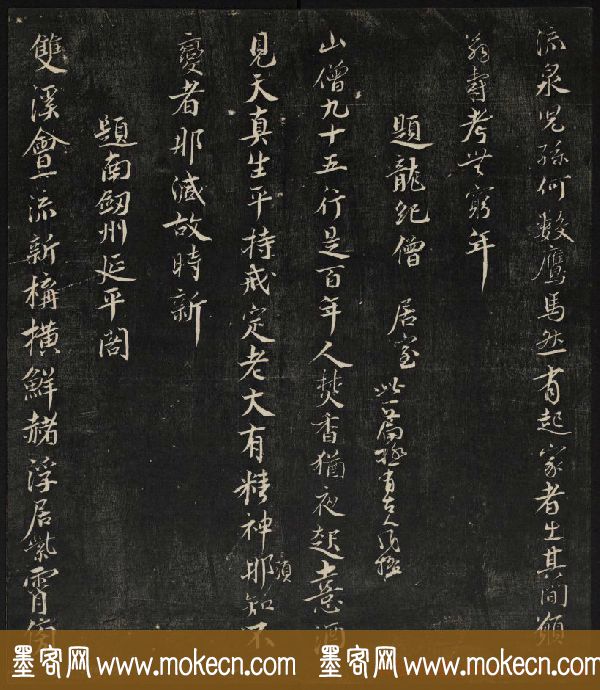 流泉兒孫何數鴈馬然有起家者出其間願
翁壽考無窮年
題龍紀僧居室 此一篇極有古人風格
山僧九十五行是百年人焚香猶夜起憙酒
見天真生平持戒定老大有精神那須知不
變者那減故時新
題南劒州延平閣
雙溪會一流新構橫鮮赭浮居紫霄
墨客网 www.mokecn.com 墨客网 www.mokecn.com